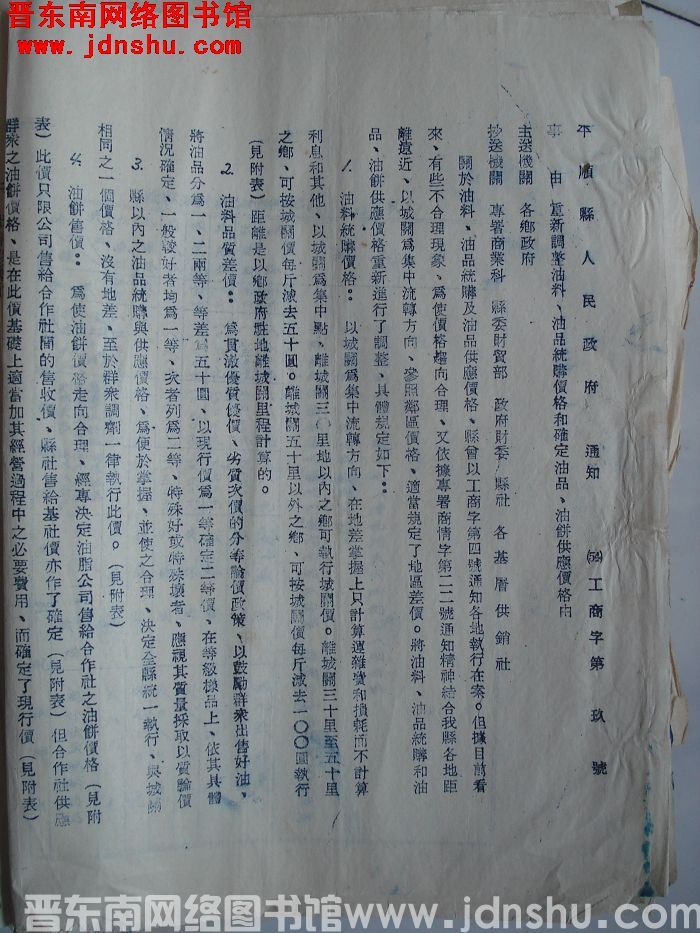 晋东南网络图书馆
www.jdnshu.com
平順縣人民政府 通知 (54)工商字第玖號
事由 重新調整油料、油品統購價格和確定油品、油餅供應價格由
主送機關 各鄉政府
抄送機關 專署商業科 縣委財貿部 政府財委 縣社 各基層供銷社
關於油料、油品統購及油品供應價格、縣曾以工商字第四號通知各地執行在案。但據目前看
來、有些不合理現象、爲使價格趨向合理、又依據專署商情字第二二號通知精神結合我縣各地距
離遠近、以城關爲集中流轉方向、參照鄰區價格、適當規定了地區差價。將油料、油品統購和油
品、油餅供應價格重新進行了調整、具體規定如下：
1. 油料統購價格： 以城關爲集中流轉方向、在地差掌握上只計算運雜費和損耗而不計算
利息和其他、以城關爲集中點、離城關三〇里地以內之鄉可執行城關價。離城關三十里至五十里
之鄉、可按城關價每斤減去五十圓。離城關五十里以外之鄉、可按城關價每斤減去一〇〇圓執行
(見附表)距離是以鄉政府駐地離城關里程計算的。
2. 油料品質差價： 爲貫澈優質優價、劣質次價的分等論價政策、以鼓勵群衆出售好油、
將油品分爲一、二兩等、等差爲五十圓、以現行價爲一等確定二等價、在等級樣品上、依其具體
情況確定、一般較好者均爲一等、次者列爲二等、特殊好或特殊壞者、應視其質量採取以質論價
3. 縣以內之油品統購與供應價格、爲便於掌握、並使之合理、決定全縣統一執行、與城關
相同之一個價格、沒有地差、至於群衆調劑一律執行此價。(見附表)
4. 油餅售價： 爲使油餅價格走向合理、經專決定油脂公司售給合作社之油餅價格(見附
表)此價只限公司售給合作社間的售收價、縣社售給基社價亦作了確定(見附表)但合作社供應
群衆之油餅價格、是在此價基礎上適當加其經營過程中之必要費用、而確定了現行價(見附表)
晋东南网络图书馆 www.jdnshu.com